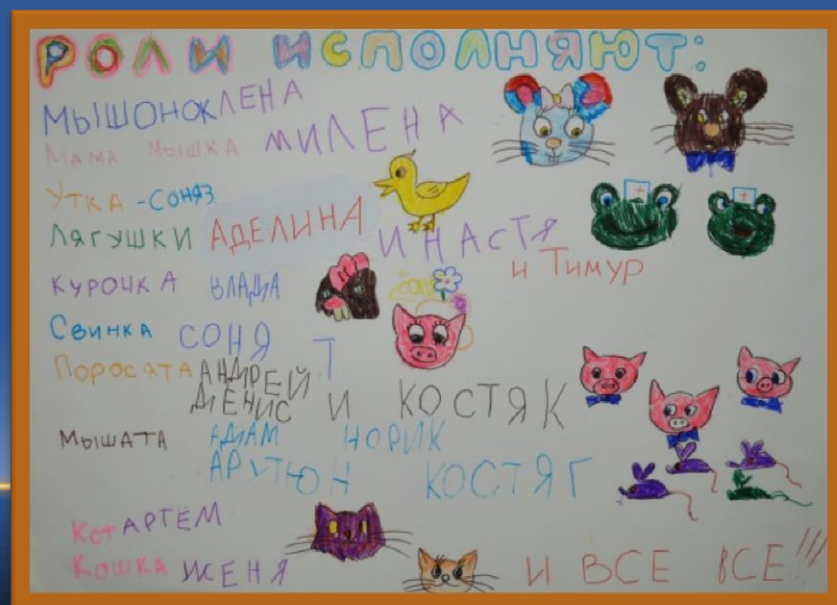 РОЛИ ИСПОЛНЯЮТ:
МЫШОНОК ЛЕНА
МАМА МЫШКА МИЛЕНА
УТКА - СОНЯЗ
ЛЯГУШКИ АДЕЛИНА И НАСТЯ
и Тимур
КУРОЧКА ВЛАДА
СВИНКА СОНЯ Т
Поросата АНДРЕЙ
ДЕНИС И КОСТЯК
МЫШАТА АДАМ НОРИК
АРУТЮН КОСТЯГ
Кот АРТЕМ
Кошка ЖЕНЯ И ВСЕ ВСЕ!!!